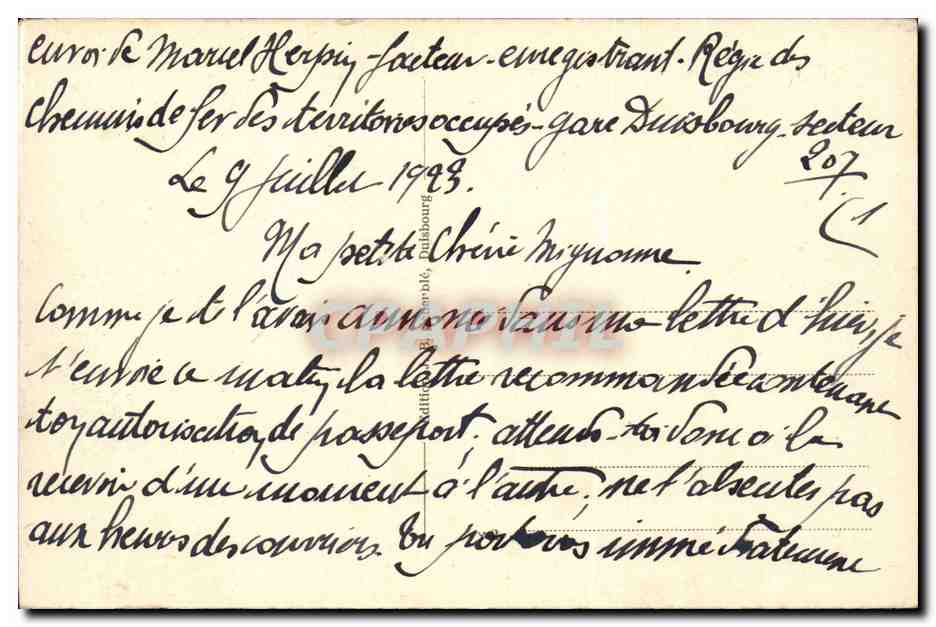 envoi de Marcel Herpin - facteur - enregistrant - Régie des
Chemins de fer des territoires occupés - gare Duisbourg - secteur
207
Le 9 Juillet 1923.
(1
Ma petite Chérie Mignonne
Comme je te l'avais annoncé dans ma lettre d'hier, je
t'envoie ce matin la lettre recommandée contenant
ton autorisation de passeport, attends-toi donc à la
recevoir d'un moment à l'autre, ne t'absentes pas
aux heures des courriers. Tu porteras immédiatement
Duisbourg
CPAPHIL